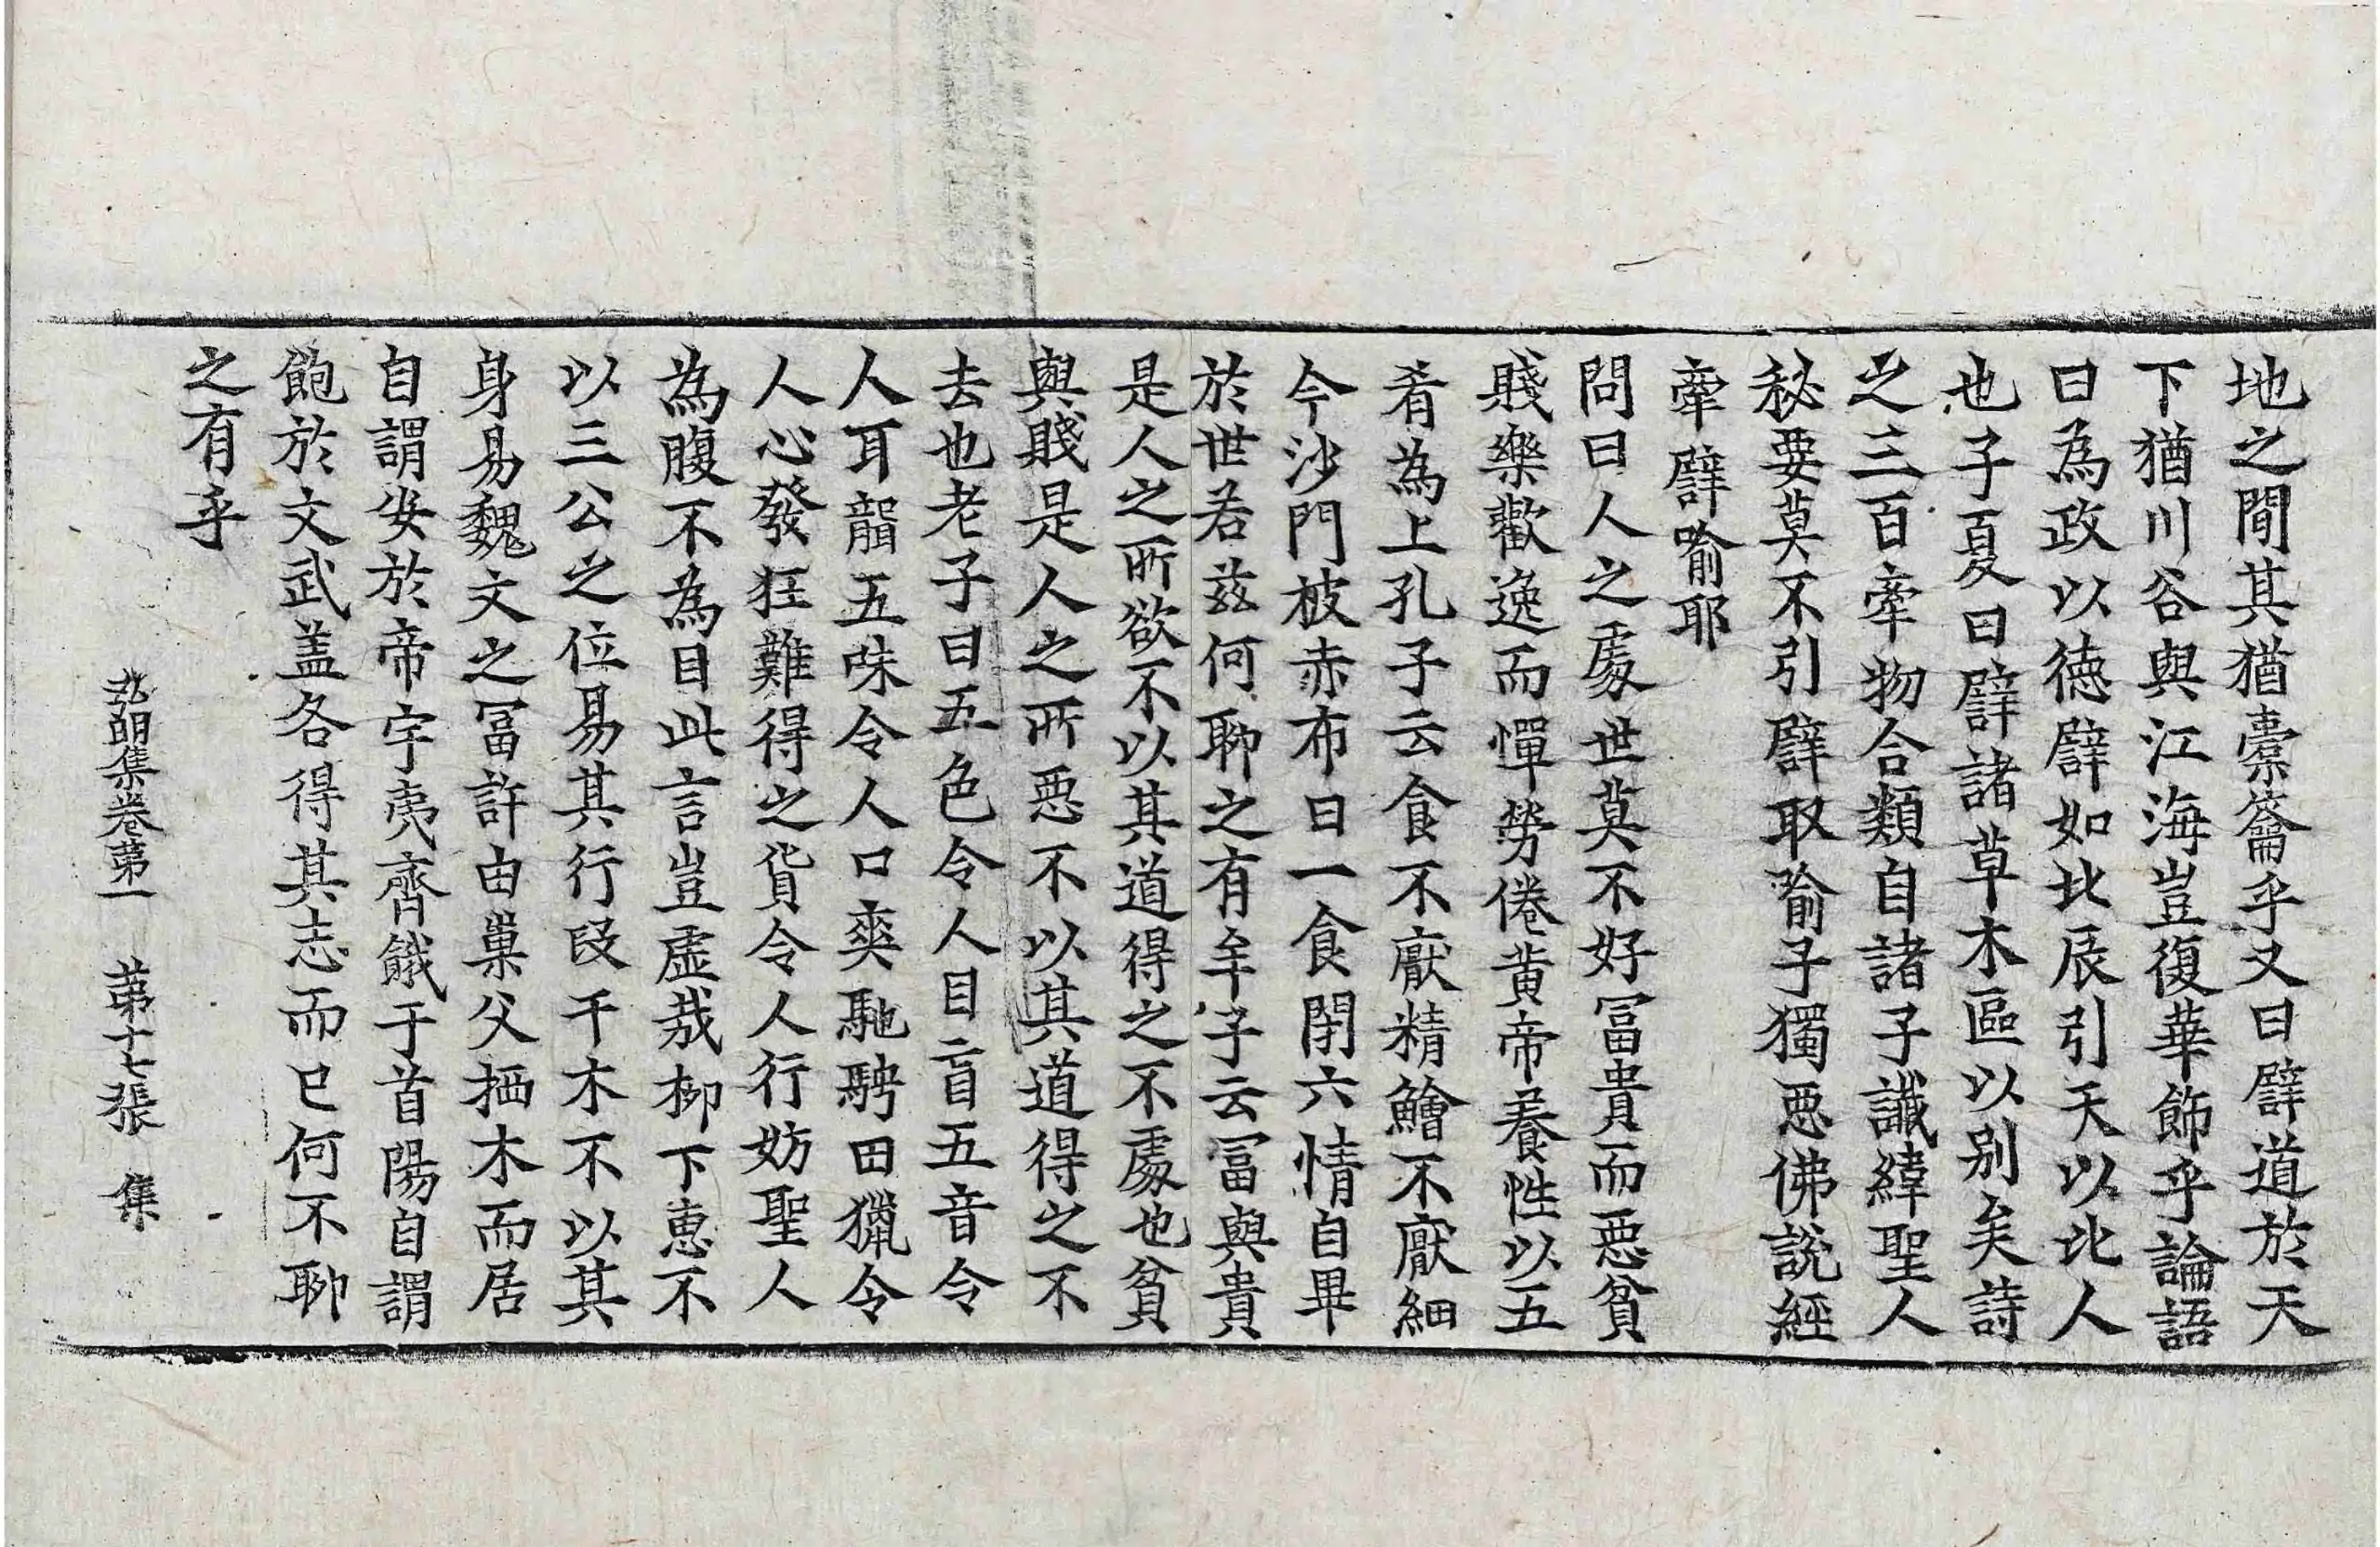 地之間其猶橐籥乎又曰譬道於天
下猶川谷與江海豈復華飾乎論語
曰為政以德譬如北辰引天以比人
也子夏曰譬諸草木區以别矣詩
之三百牽物合類自諸子讖緯聖人
秘要莫不引譬取喻子獨惡佛說經
牽譬喻耶
問曰人之處世莫不好冨貴而惡貧
賤樂歡逸而憚勞倦黃帝養性以五
肴為上孔子云食不厭精鱠不厭細
今沙門被赤布日一食閉六情自畢
於世若茲何聊之有牟子云冨與貴
是人之所欲不以其道得之不處也貧
與賤是人之所惡不以其道得之不
去也老子曰五色令人目盲五音令
人耳聾五味令人口爽馳騁田獵令
人心發狂難得之貨令人行妨聖人
為腹不為目此言豈虛哉柳下惠不
以三公之位易其行段干木不以其
身易魏文之冨許由巢父栖木而居
自謂安於帝宇夷齊餓于首陽自謂
飽於文武盖各得其志而已何不聊
之有乎
弘明集卷第一　第十七張　集